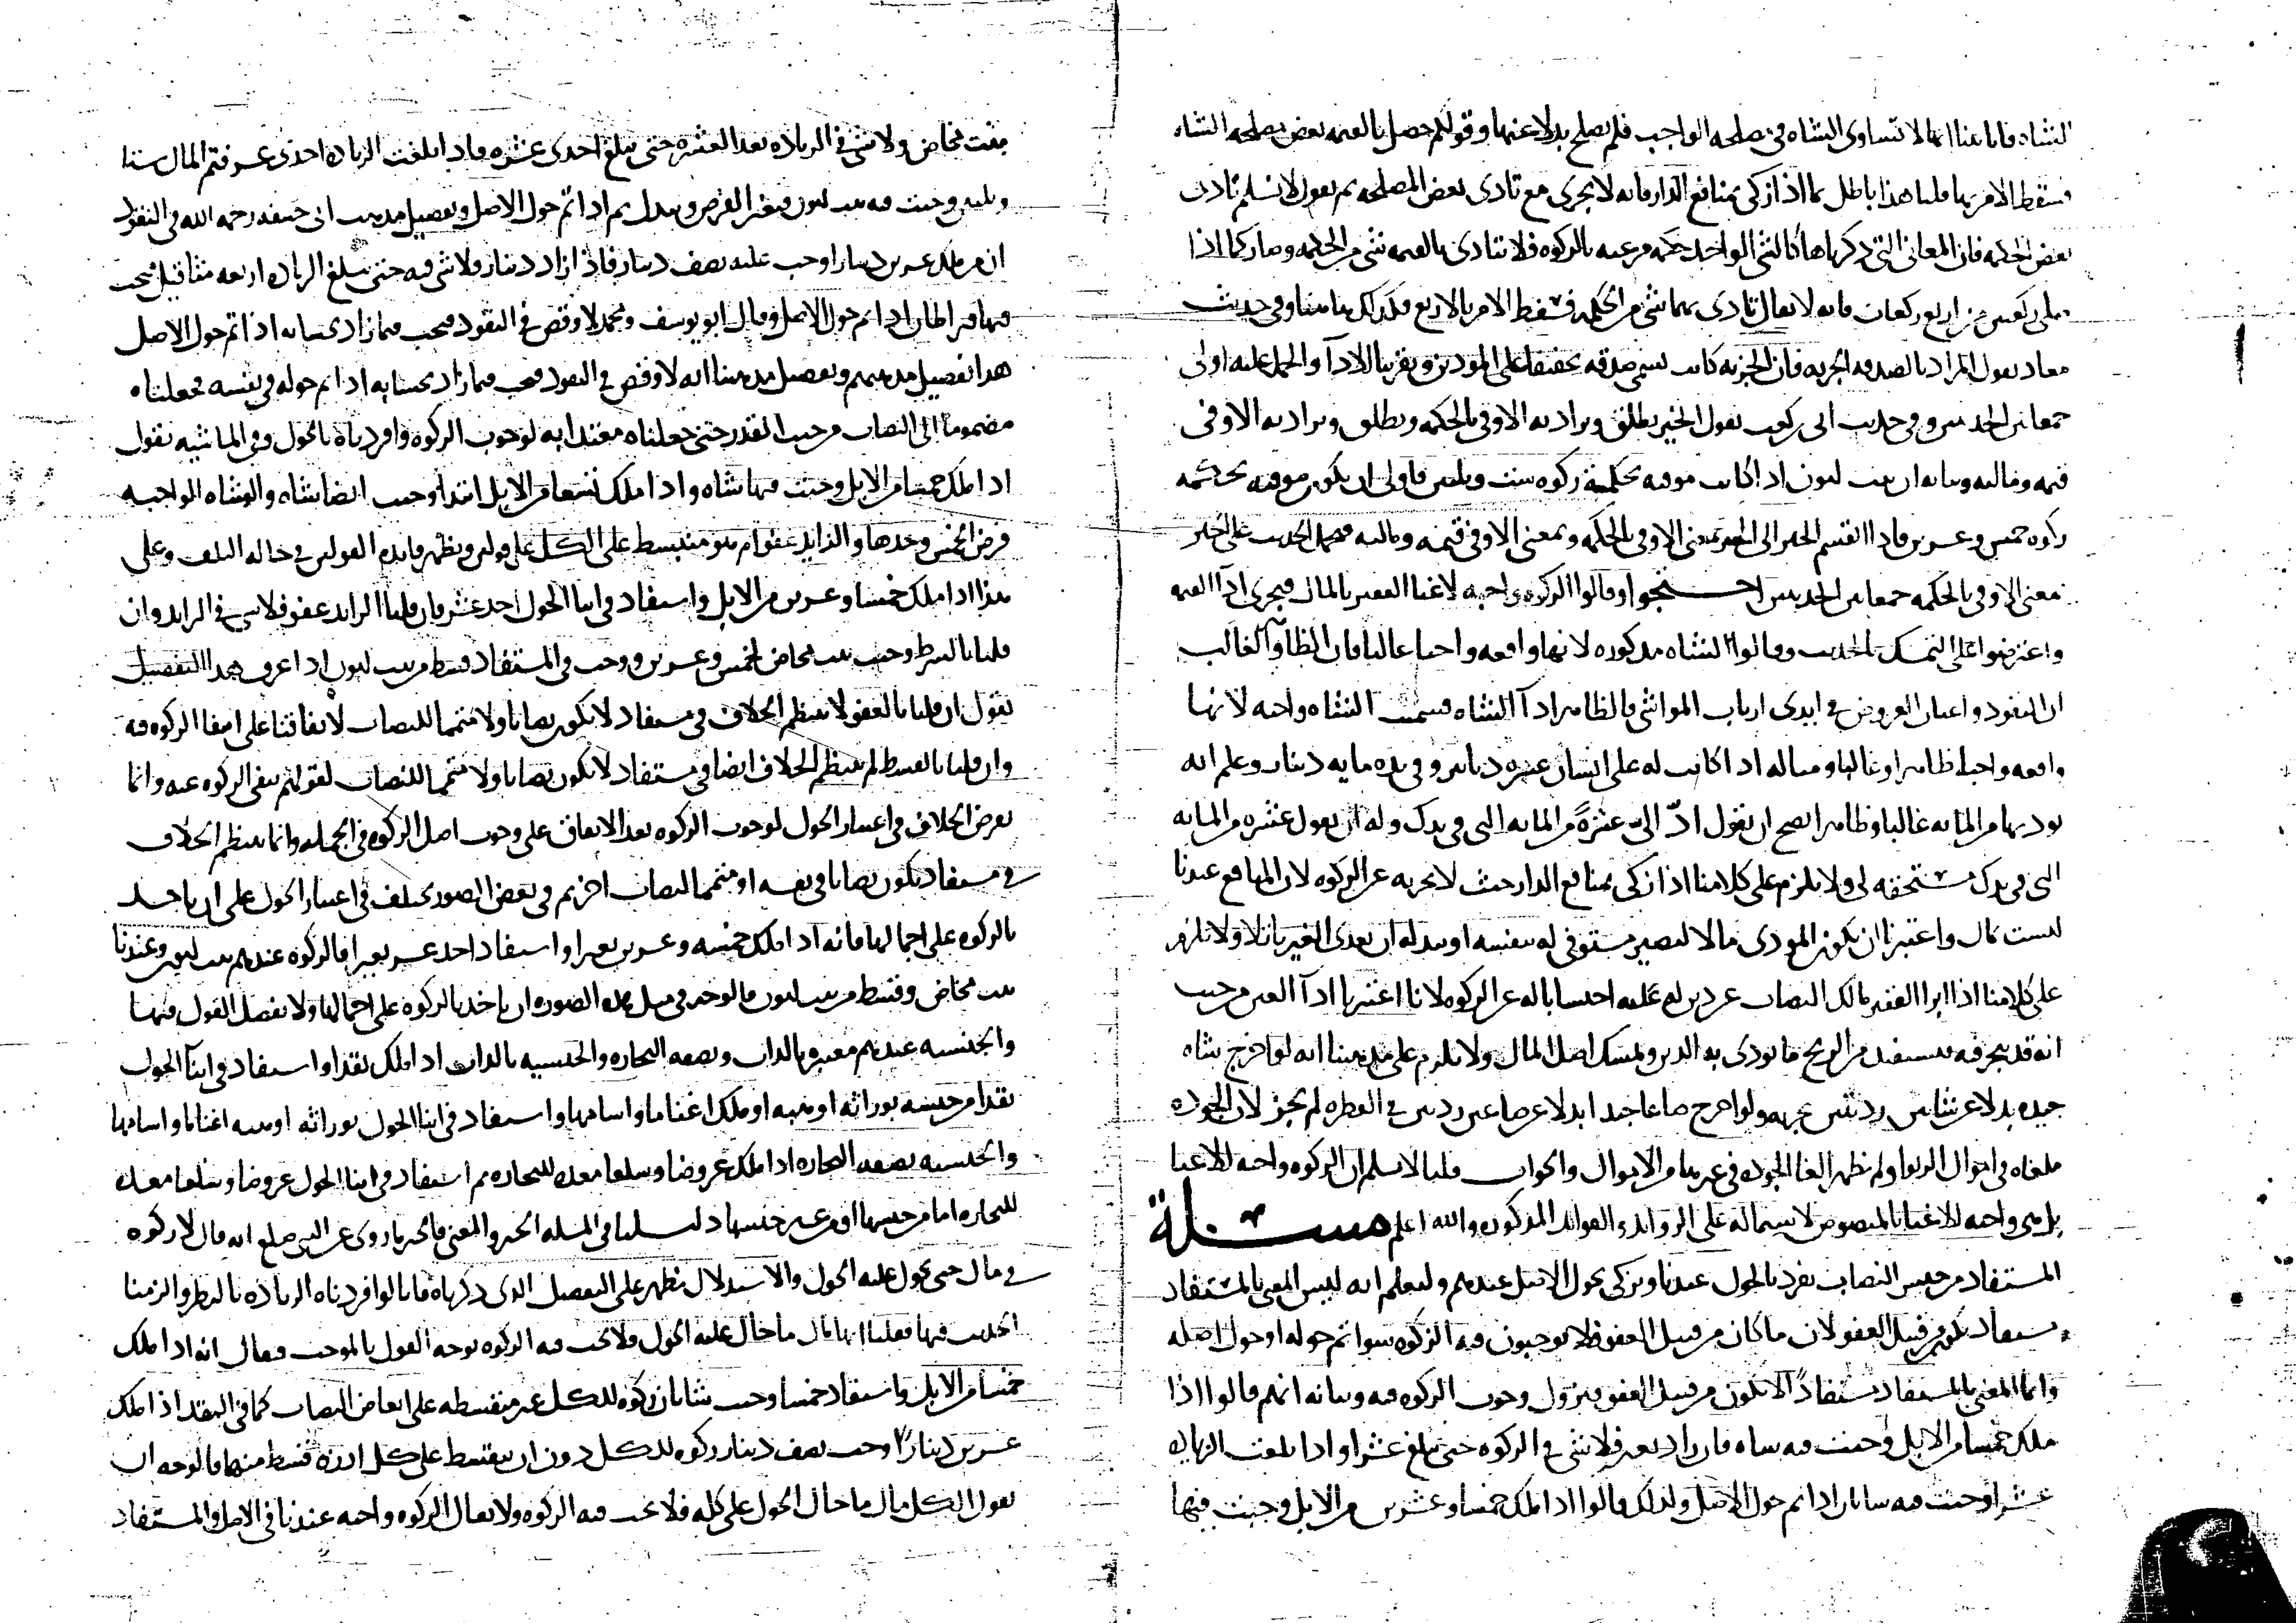 الشاه فانا بينا انها لا تساوى الشاه فى مصلحه الواجب فلم يصلح بدلا عنها وقولكم حصل بالقيمه بعض مصلحه الشاه
فسقط الامر بها قلنا هذا باطل بما اذا زكى بمنافع الدار فانه لا يجرى مع تادى بعض المصلحه ثم نقول لا نسلم تادى
بعض الحكمه فان المعانى التى ذكرناها كالشى الواحد حكمه مرعيه بالزكوه فلا تتادى بالقيمه شى من الحكمه وصار كما اذا
صلى ركعتين من اربع ركعات فانه لا يقال تادى بهما شى من الحكمه فسقط الامر بالاربع فكذلك هاهنا وفى حديث
معاد نقول المراد بالصدقه الجزيه فان الجزيه كانت تسمى صدقه تخفيفا على المودين وتقريبا للادآ والحمل عليه اولى
جمعا بين الحديثين وفى حديث ابى بن كعب نقول الخير يطلق ويراد به الاوفى بالحكمه ويطلق ويراد به الاوفى
قيمه وماليه وبيانه ان بنت لبون اذا كانت موفيه بحكمة زكوه ست وثلثين فاولى ان يكون موفيه بحكمه
زكوه خمس وعشرين فاذا انقسم الخير الى الخير بمعنى الاوفى بالحكمه وبمعنى الاوفى قيمه وماليه فيحمل الحديث على الخير
بمعنى الاوفى بالحكمه جمعا بين الحديثين احتجوا وقالوا الزكوه واجبه لاغنا الفقير بالمال فيجرى ادآ القيمه
واعترضوا على التمسك بالحديث وقالوا الشاه مذكوره لانها واقعه واجبا غالبا فان الظاهر والغالب
ان النقود واعيان العروض فى ايدى ارباب المواشى والظاهر ادآ الشاه فسميت الشاه واجبه لانها
واقعه واجبا ظاهرا وغالبا ومثاله اذا كانت له على انسان عشره دنانير وفى يده مايه دينار وعلم انه
يوديها من المايه غالبا وظاهرا يصح ان يقول ادّ الىّ عشرةً من المايه التى فى يدك وله ان يقول عشره من المايه
التى فى يدك مستحقه لى ولا يلزم على كلامنا اذا زكى بمنافع الدار حيث لا يجريه عن الزكوه لان المنافع عندنا
ليست بمال واعتبرنا ان يكون المودى مالا ليصير مستوفى له بنفسه او ببدله ان تعدى الغير باتلافه ولا يلزم
على كلامنا اذا ابرا الفقير مالك النصاب عن دين له عليه احتسابا له عن الزكوه لانا اعتبرنا ادآ العين من حيث
انه قد يتجر فيه فيستفيد من الربح ما يودى به الدين ويمسك اصل المال ولا يلزم على مذهبنا انه لو اخرج شاه
جيده بدلا عن شاتين رديتين يجزيه ولو اخرج صاعا جيدا بدلا عن صاعين رديين فى الفطره لم يجز لان الجوده
ملغاه فى اموال الربوا ولم يظهر الغا الجوده فى غيرها من الاموال والجواب قلنا لا نسلم ان الزكوه واجبه للاغنا
بل هى واجبه للاغنا بالمنصوص لاشتماله على الزوايد والفوايد المذكوره والله اعلم مسئلة
المستفاد من جنس النصاب يفرد بالحول عندنا ويزكى بحول الاصل عندهم وليعلم انه ليس المعنى بالمستفاد
مستفاد يكون من قبيل العفو لان ما كان من قبيل العفو فلا يوجبون فيه الزكوه سوا تم حوله او حول اصله
وانما المعنى بالمستفاد مستفادًا لا يكون من قبيل العفو فيترول وجوب الزكوه فيه وبيانه انهم قالوا اذا
ملك خمسا من الابل وجبت فيه شاه فان زاد بعير فلا شى فى الزكوه حتى تبلغ عشرا واذا بلغت الزياده
عشرا وجبت فيه شاتان اذا تم حول الاصل ولذلك قالوا اذا ملك خمسا وعشرين من الابل وجبت فيها
بنت مخاض ولا شى فى الزياده بعد العشره حتى تبلغ احدى عشره فاذا بلغت الزياده احدى عشر فتم المال ستا
وثلثين وجبت فيه بنت لبون فيغير الفرض ويبدل ثم اذا تم حول الاصل وتفصيل مذهب ابى حنيفه رحمه الله فى النقود
ان من ملك عشرين دينارا وجب عليه نصف دينار فاذا زاد دينار فلا شى فيه حتى تبلغ الزياده اربعه مثاقيل فيجب
فيها قيراطان اذا تم حول الاصل وقال ابو يوسف ومحمد لا وقص فى النقود فيجب فيما زاد بحسابه اذا تم حول الاصل
هذا تفصيل مذهبهم وتفصيل مذهبنا انه لا وقص فى النقود فيجب فيما زاد بحسابه اذا تم حوله فى نفسه فجعلناه
مضموما الى النصاب من حيث القدر حتى جعلناه معتدا به لوجوب الزكوه وافردناه بالحول وفى الماشيه نقول
اذا ملك خمسا من الابل وجبت فيها شاه واذا ملك تسعا من الابل ابتدا وجب ايضا شاه والشاه الواجبه
فرض الخمس وحدها والزايد عفو ام هو منبسط على الكل على قولين وتظهر فايده القولين فى حاله التلف وعلى
هذا اذا ملك خمسا وعشرين من الابل واستفاد فى اثنا الحول احد عشر فان قلنا الزايد عفو فلا شى فى الزايد وان
قلنا بالبسط وجب بنت مخاض لخمس وعشرين ووجب فى المستفاد قسط من بنت لبون اذا عرف هذا التفصيل
نقول ان قلنا بالعفو لا ينتظم الخلاف فى مستفاد لا يكون نصابا ولا متمما للنصاب لاتفاقنا على انتفا الزكوه فيه
وان قلنا بالقسط لم ينتظم الخلاف ايضا فى مستفاد لا يكون نصابا ولا متمما للنصاب لقولهم بنفى الزكوه عنه وانما
يعرض الخلاف فى اعتبار الحول لوجوب الزكوه بعد الاتفاق على وجوب اصل الزكوه فى الجمله وانما ينتظم الخلاف
فى مستفاد يكون نصابا فى نفسه او متمما لنصاب اخر ثم فى بعض الصور يختلف فى اعتبار الحول على ان ياخذ
بالزكوه على اجمالها فانه اذا ملك خمسه وعشرين بعيرا واستفاد احد عشر بعيرا فالزكوه عندهم بنت لبون وعندنا
بنت مخاض وقسط من بنت لبون فالوجه فى مثل هذه الصوره ان ياخذ بالزكوه على اجمالها ولا نفصل القول فيها
والجنسيه عندهم معتبره بالذات وبصفه التجاره والجنسيه بالذات اذا ملك نقدا واستفاد فى اثنآ الحول
نقدا من جنسه بوراثه او هبه او ملك اغناما واسامها واستفاد فى اثنا الحول بوراثه او هبه اغناما واسامها
والجنسيه بصفه التجاره اذا ملك عروضا وسلعا معده للتجاره ثم استفاد فى اثنا الحول عروضا وسلعا معده
للتجاره اما من جنسها او من غير جنسها دليلنا فى المسله الخبر والمعنى فالخبر ما روى عن النبى صلع انه قال لا زكوه
فى مال حتى يحول عليه الحول والاستدلال يظهر على التفصيل الذى ذكرناه فانا لو افردناه الزياده بالنظر والزمنا
الحديث فيها فقلنا انها مال ما حال عليه الحول فلا تجب فيه الزكوه توجه القول بالموجب فيقال انه اذا ملك
خمسا من الابل واستفاد خمسا وجب شاتان زكوه للكل غير منقسطه على ابعاض النصاب كما فى النقد اذا ملك
عشرين دينارًا وجب نصف دينار زكوه للكل دون ان يتقسط على كل قسط منها فالوجه ان
نقول الكل مال ما حال الحول على كله فلا تجب فيه الزكوه ولا يقال الزكوه واجبه عندنا فى الاصل والمستفاد